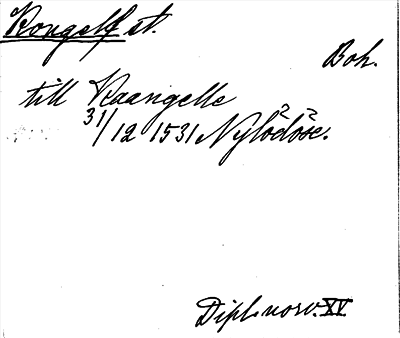 Kongelf st.
Boh.
till Kaangelle
31/12 1531 Nylödöse.
Dipl. norv. XV